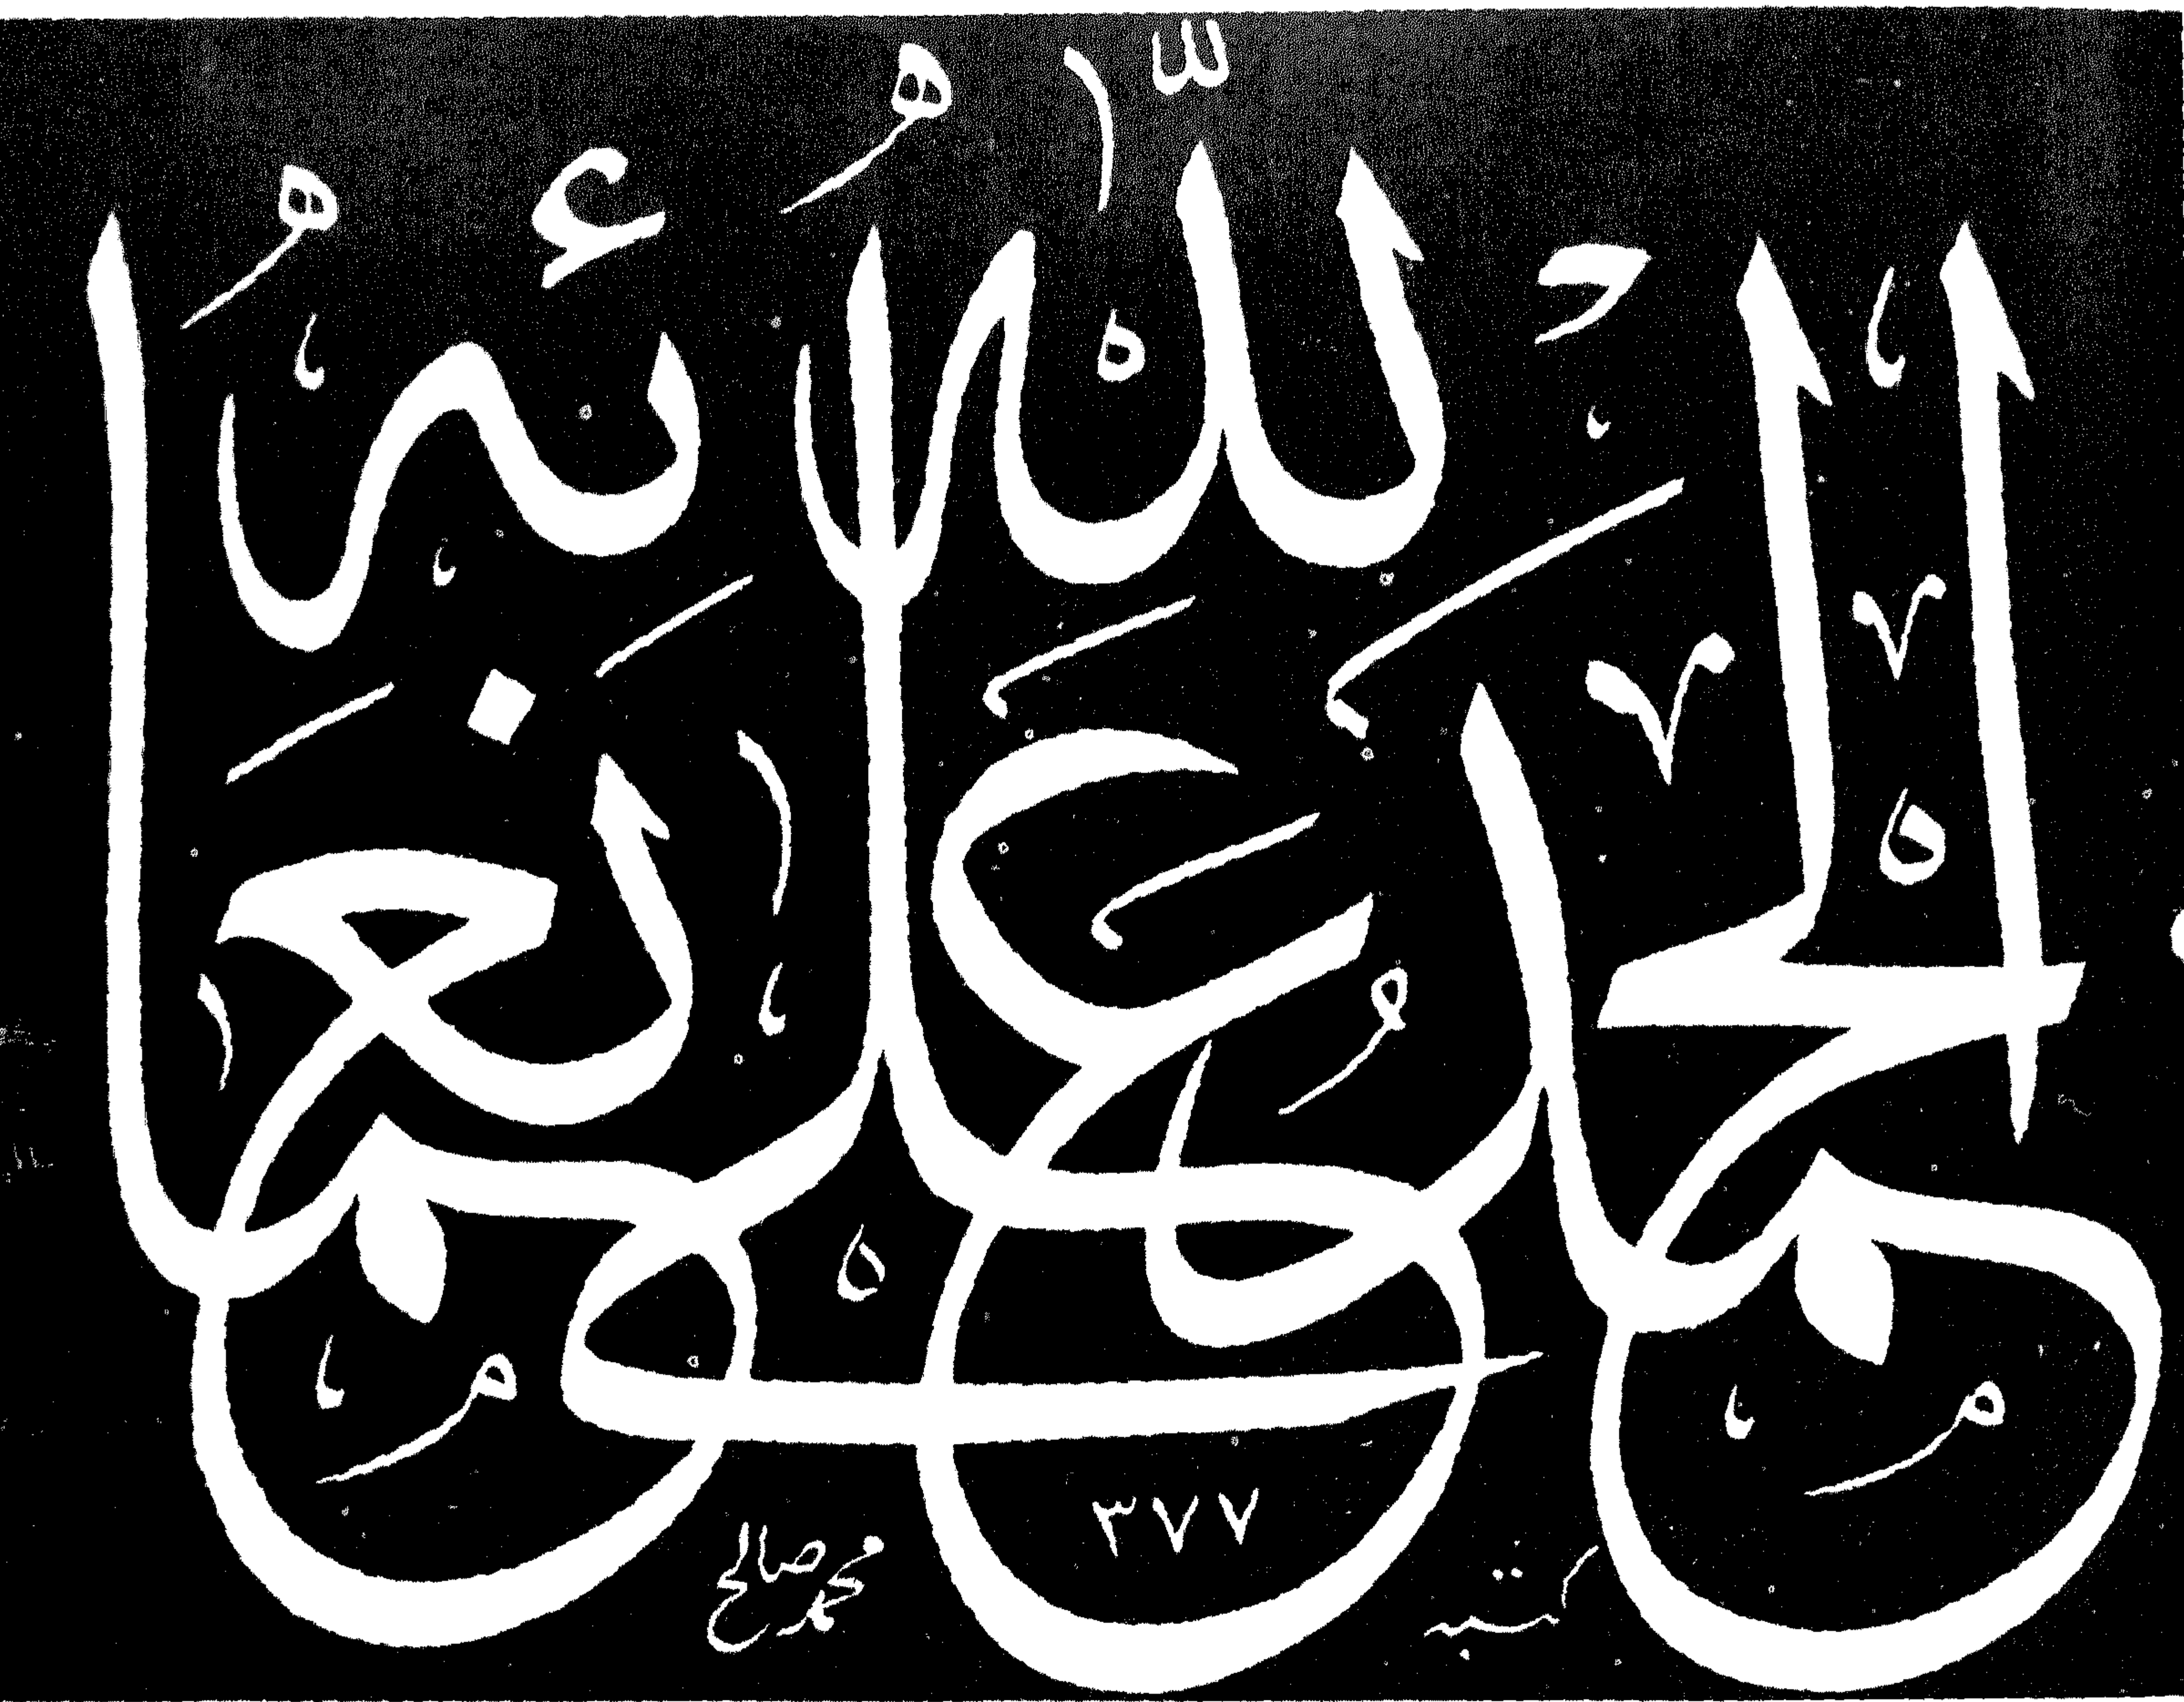 الحمد لله على نعمائه
كتبه ٣٧٧ محمد صالح